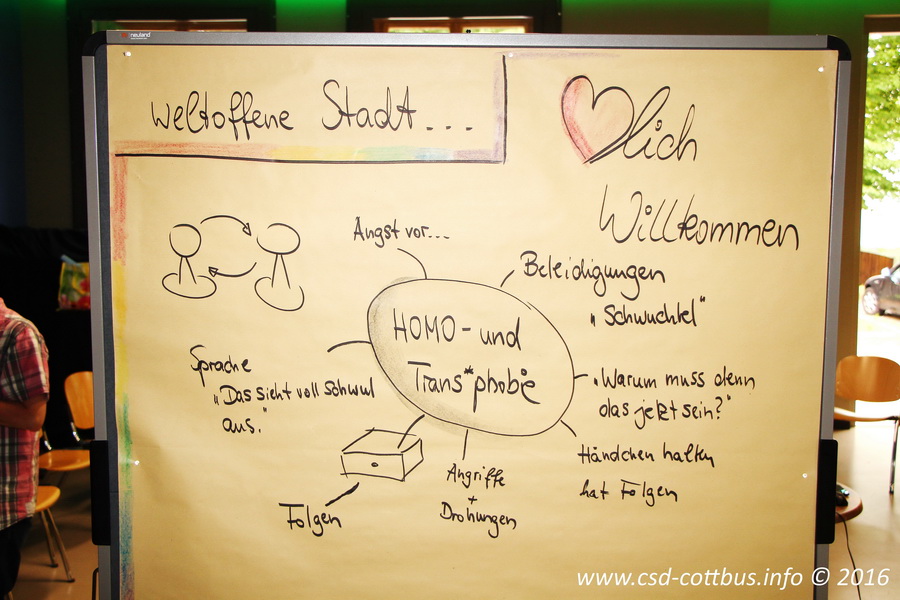 neuland
weltoffene Stadt...
lich
Willkommen
Angst vor...
Beleidigungen
„Schwuchtel"
HOMO- und
Trans*phobie
Sprache
„Das sieht voll schwul
aus."
„Warum muss denn
das jetzt sein?"
Händchen halten
hat Folgen
Angriffe
+
Drohungen
Folgen
www.csd-cottbus.info © 2016